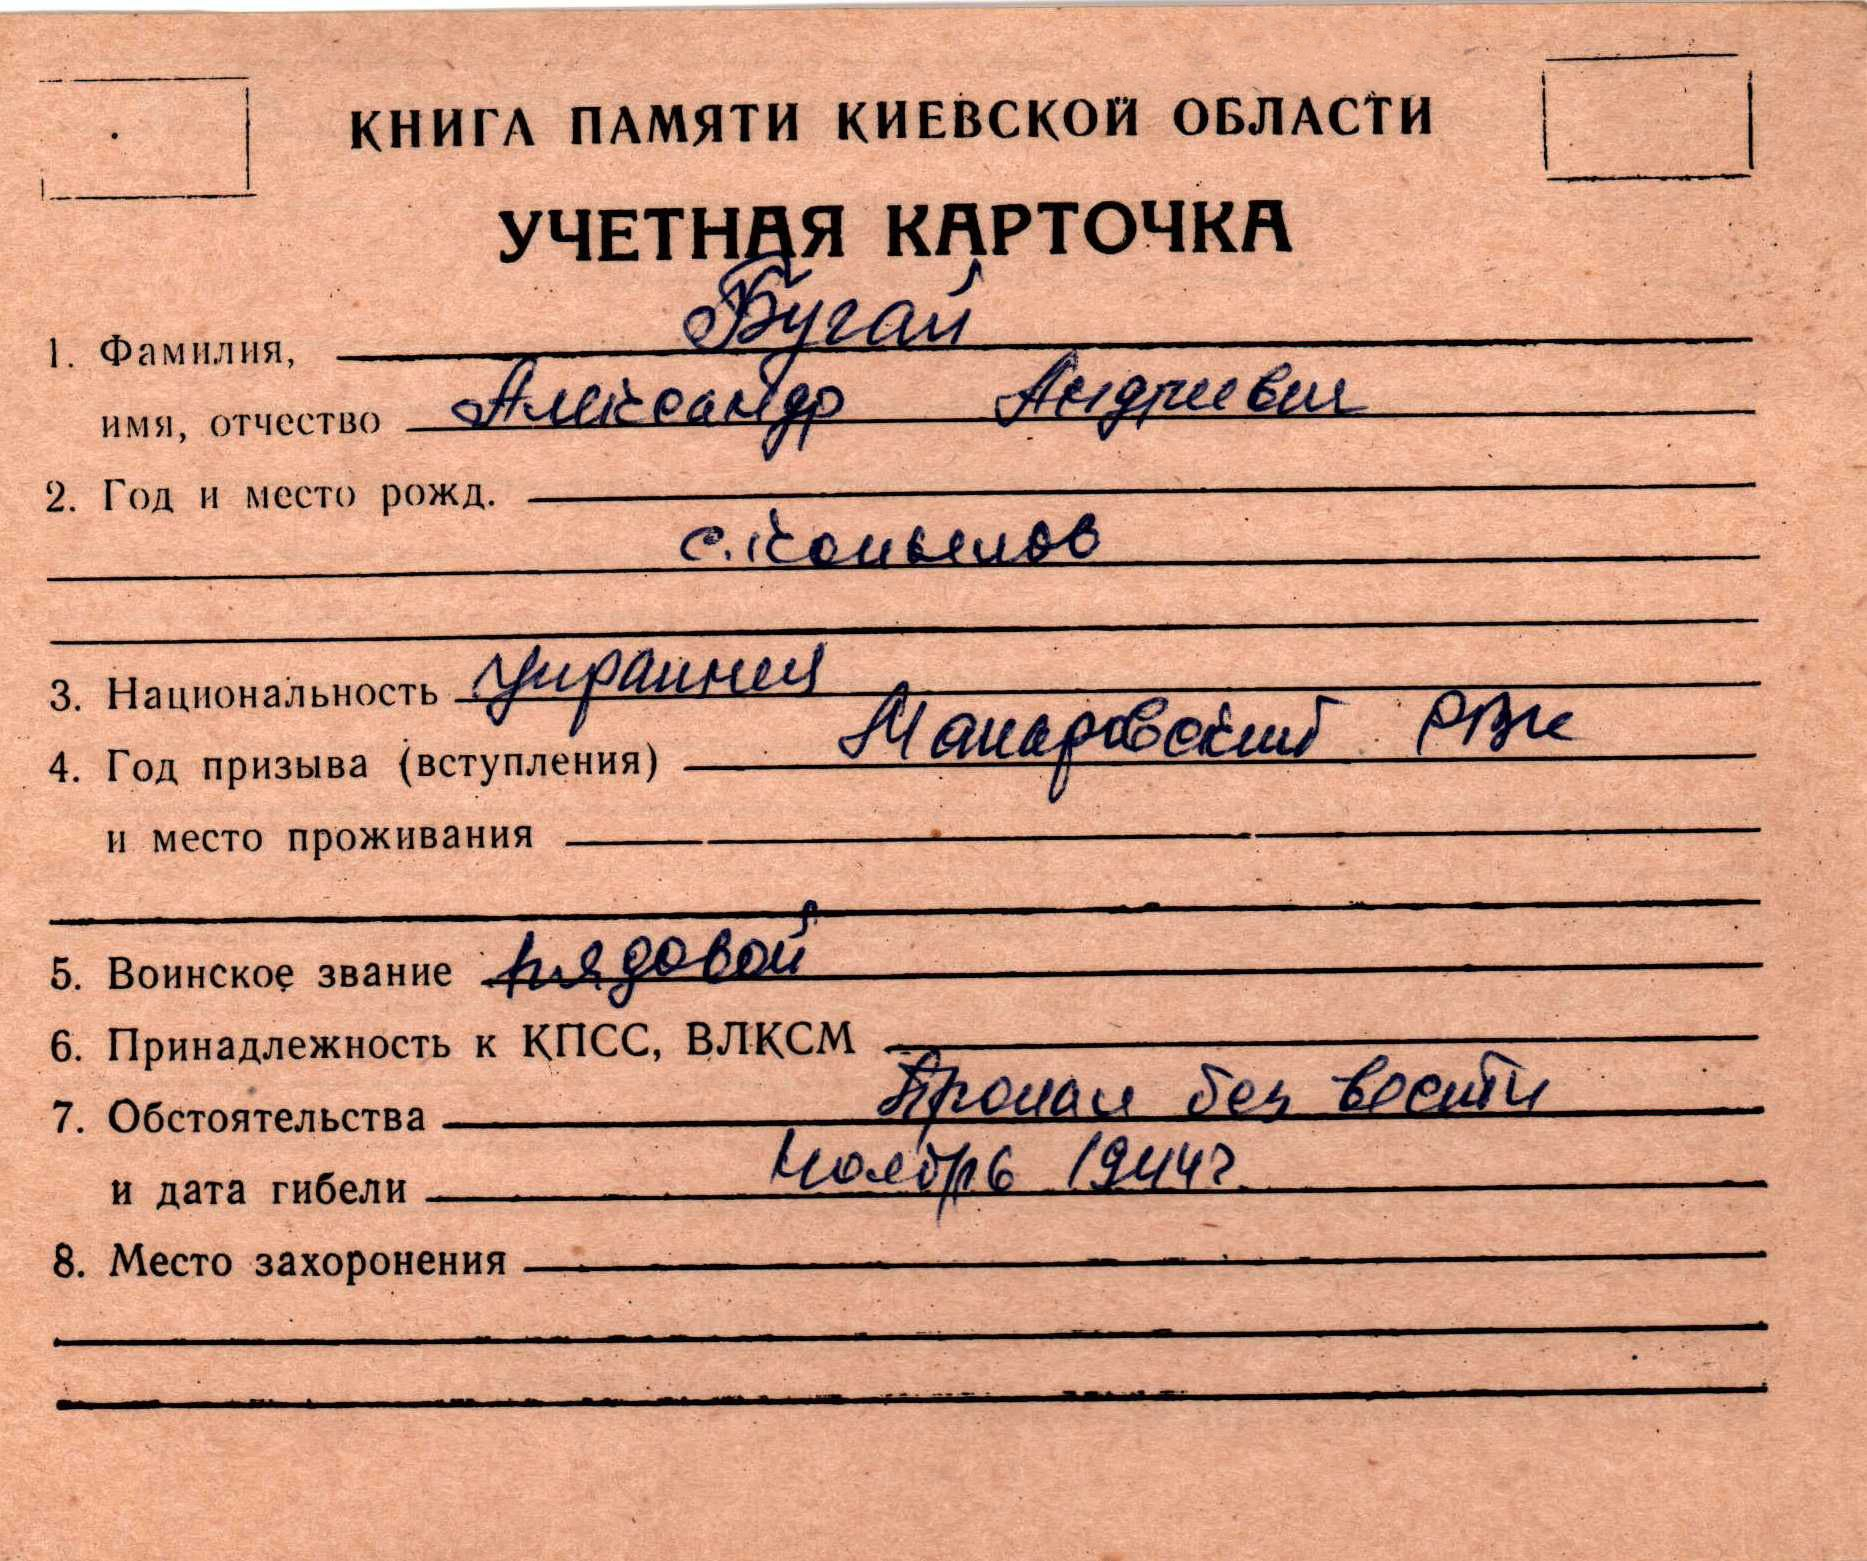 КНИГА ПАМЯТИ КИЕВСКОЙ ОБЛАСТИ
УЧЕТНАЯ КАРТОЧКА
1. Фамилия, Бугай
имя, отчество Александр Андреевич
2. Год и место рожд.
с. Копылов
3. Национальность украинец
4. Год призыва (вступления) Макаровский РВК
и место проживания
5. Воинское звание рядовой
6. Принадлежность к КПСС, ВЛКСМ
7. Обстоятельства Пропал без вести
и дата гибели Ноябрь 1944г.
8. Место захоронения